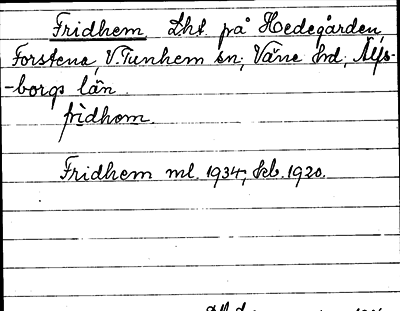 Fridhem Lht. på Hedegården,
Forstena, V. Tunhem sn; Väne hd; Älfs-
-borgs län.
fridhem.
Fridhem ml. 1934; kb. 1920.